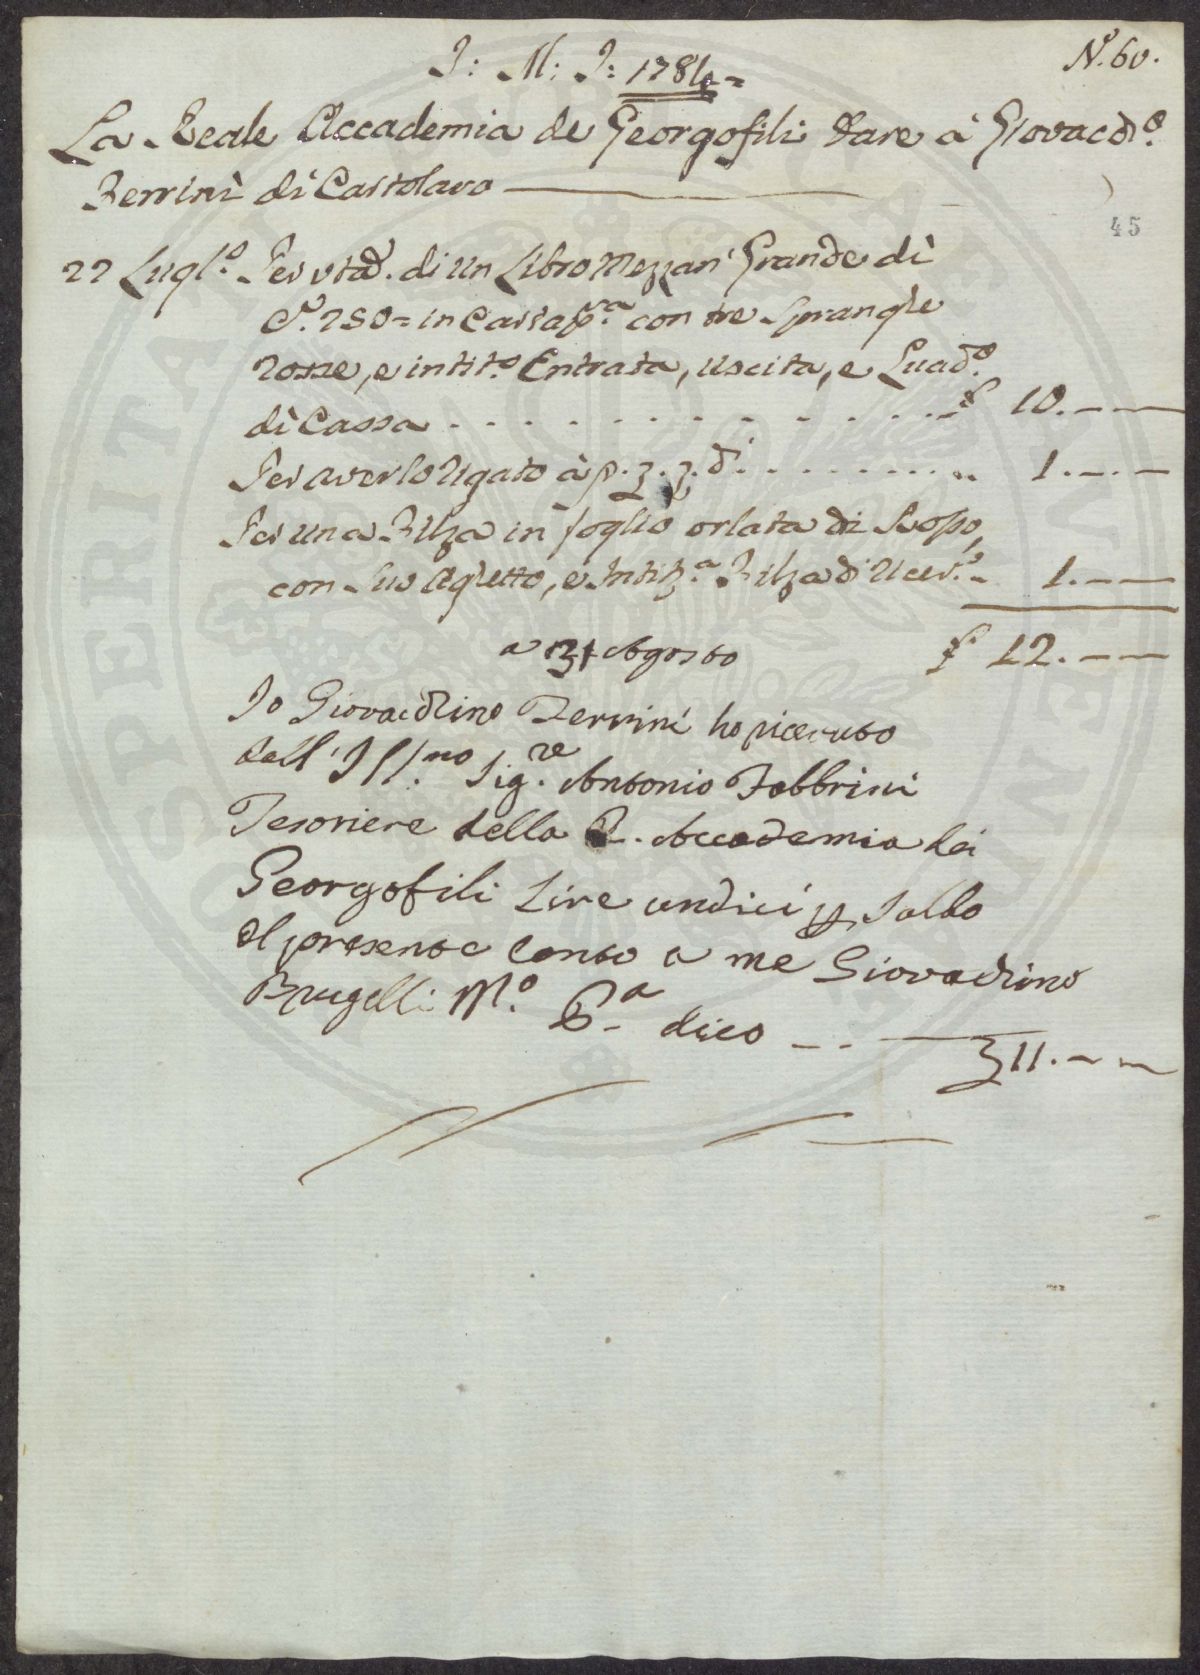 J: M: J: 1784=
N.° 60.
La Reale Accademia de Georgofili Dare à Giovacch.°
Ferrini di Cartolaro
45
22 Lugl.° Per vta. di un Libro Mezzan Grande di
C.e 250= in Carta p.ra con tre Spranghe
rosse, e intit.° Entrata, Uscita, e Quad.°
di Cassa £ 10.
Per averlo rigato à p. 3. 3. d. 1.
Per una Filza in foglio orlata di Rosso,
con Suo Aghetto, e Intit.a Filza di Ricev.e 1.
£ 12.
a 31 Agosto
Io Giovacchino Ferrini ho ricevuto
dall'Ill.mo Sig.re Antonio Fabbrini
Tesoriere della R. Accademia dei
Georgofili Lire undici p. Saldo
del presente Conto a me Giovachino
M.° P.a dico £ 11.
SPERITATI
PUBLICAE